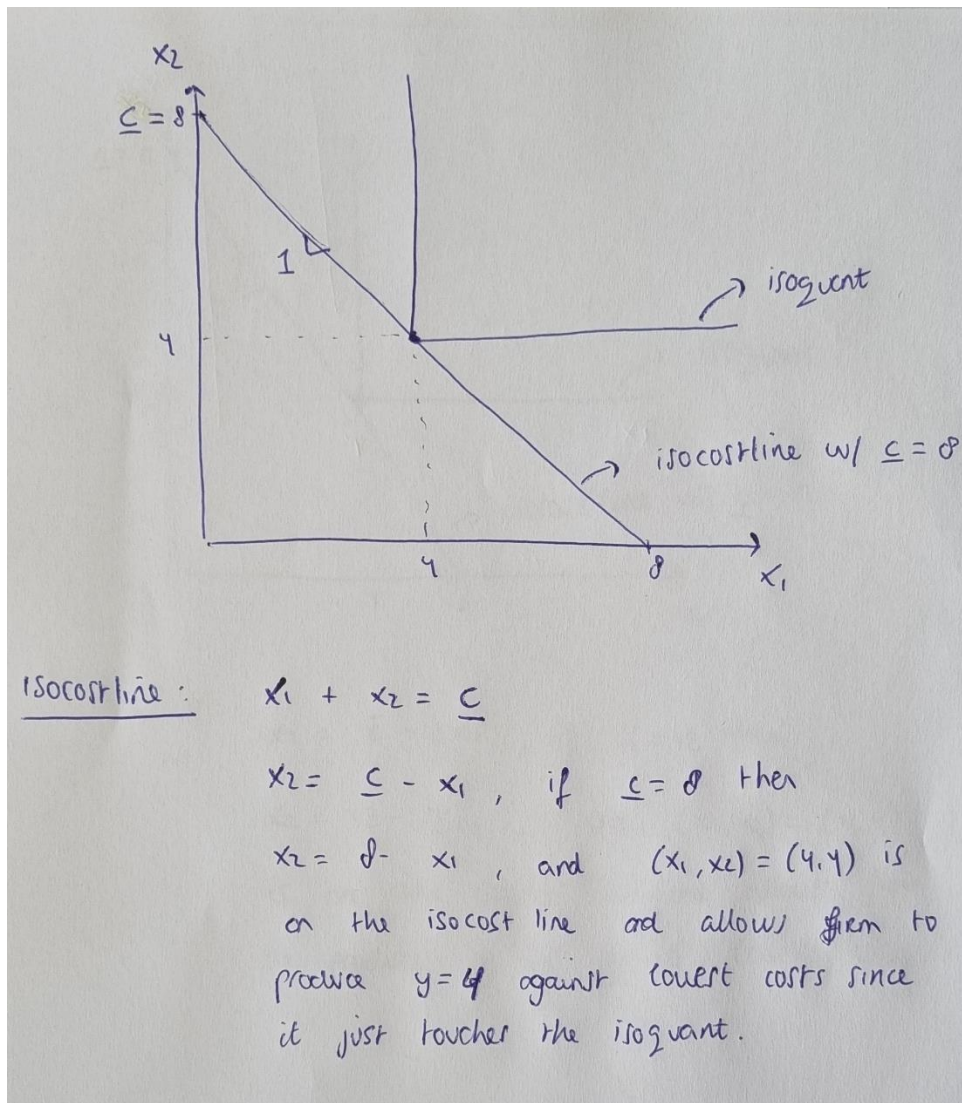 x2
c = 8
1
isoquant
4
isocostline w/ c = 8
4
8
x1
isocost line :
x1 + x2 = c
x2 = c - x1 , if c = 8 then
x2 = 8- x1 , and (x1, x2) = (4,4) is
on the isocost line and allows firm to
produce y = 4 against lowest costs since
it just touches the isoquant.